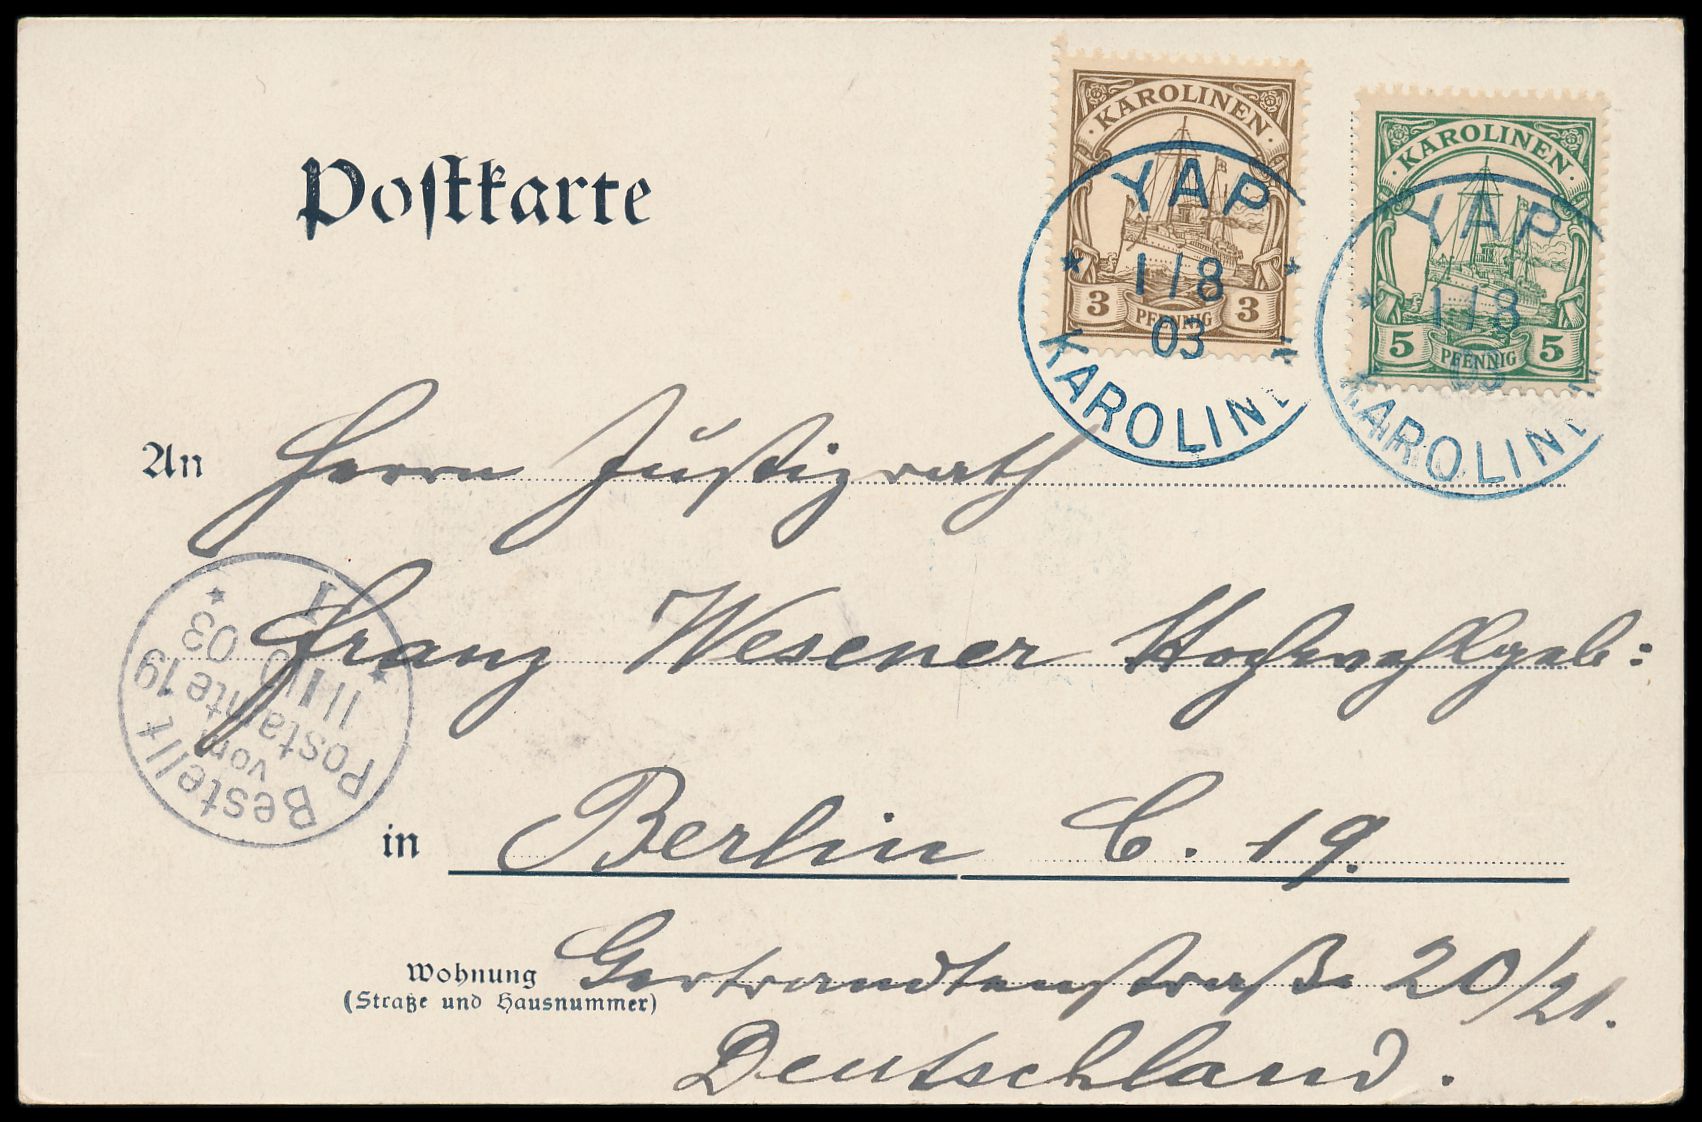 Postkarte
KAROLINEN
3 PFENNIG 3
KAROLINEN
5 PFENNIG 5
YAP
1/8
03
KAROLINE
YAP
1/8
03
KAROLINE
An Herrn Justizrath
Franz Wesener Hochwohlgeb:
in Berlin C. 19.
Wohnung
(Straße und Hausnummer)
Gertraudtenstraße 20/21.
Deutschland.
Bestellt
vom
Postamte 19
03